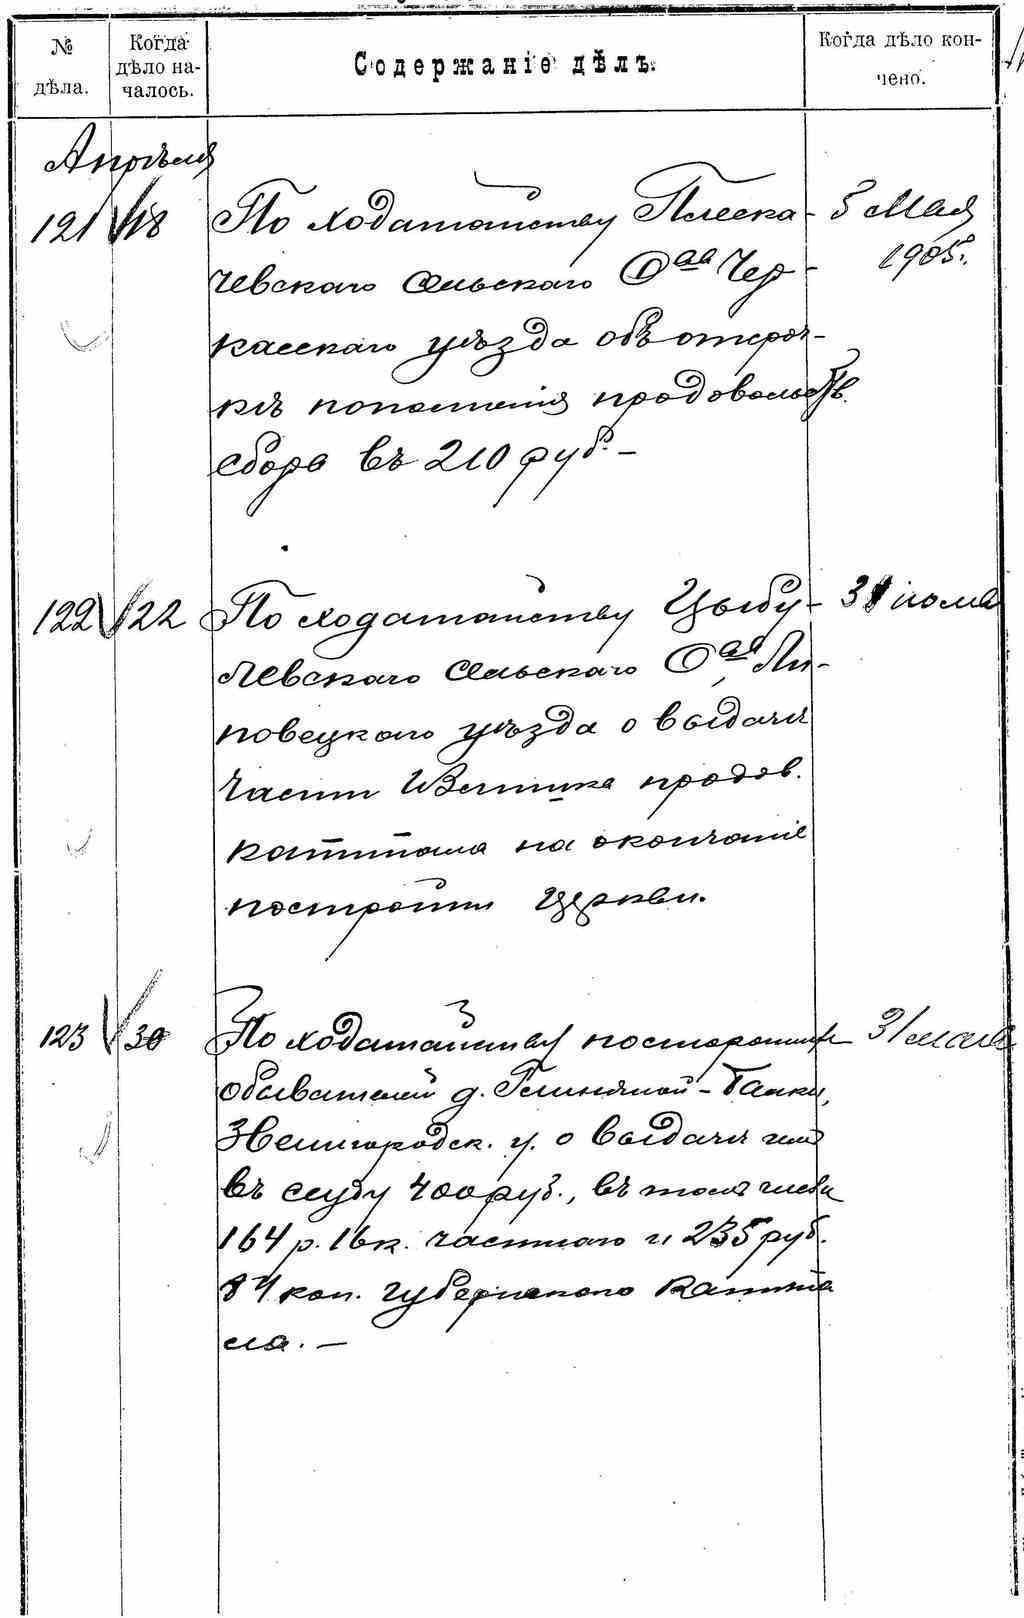 № дѣла.
Когда дѣло на-
чалось.
Содержаніе дѣлъ.
Когда дѣло кон-
чено.
Апрѣля
121 18 По ходатайству Плеска- 5 Мая
чевскаго сельскаго О-ва Чер- 1905.
касскаго уѣзда объ отсроч-
кѣ пополненія продовольств.
сбора въ 210 руб. –
122 22 По ходатайству Цыбу- 31 іюля
левскаго сельскаго О-ва Ли-
повецкаго уѣзда о выдачѣ
части продов.
капитала на окончаніе
постройки Церкви.
123 30 По ходатайству посторонних 31 мая
обывателей д. Глиняной-Балки,
Звенигородск. у. о выдачѣ имъ
въ ссуду 400 руб., въ томъ числѣ
164 р. 16 к. частнаго и 235 руб.
84 коп. губернскаго капита
ла. –